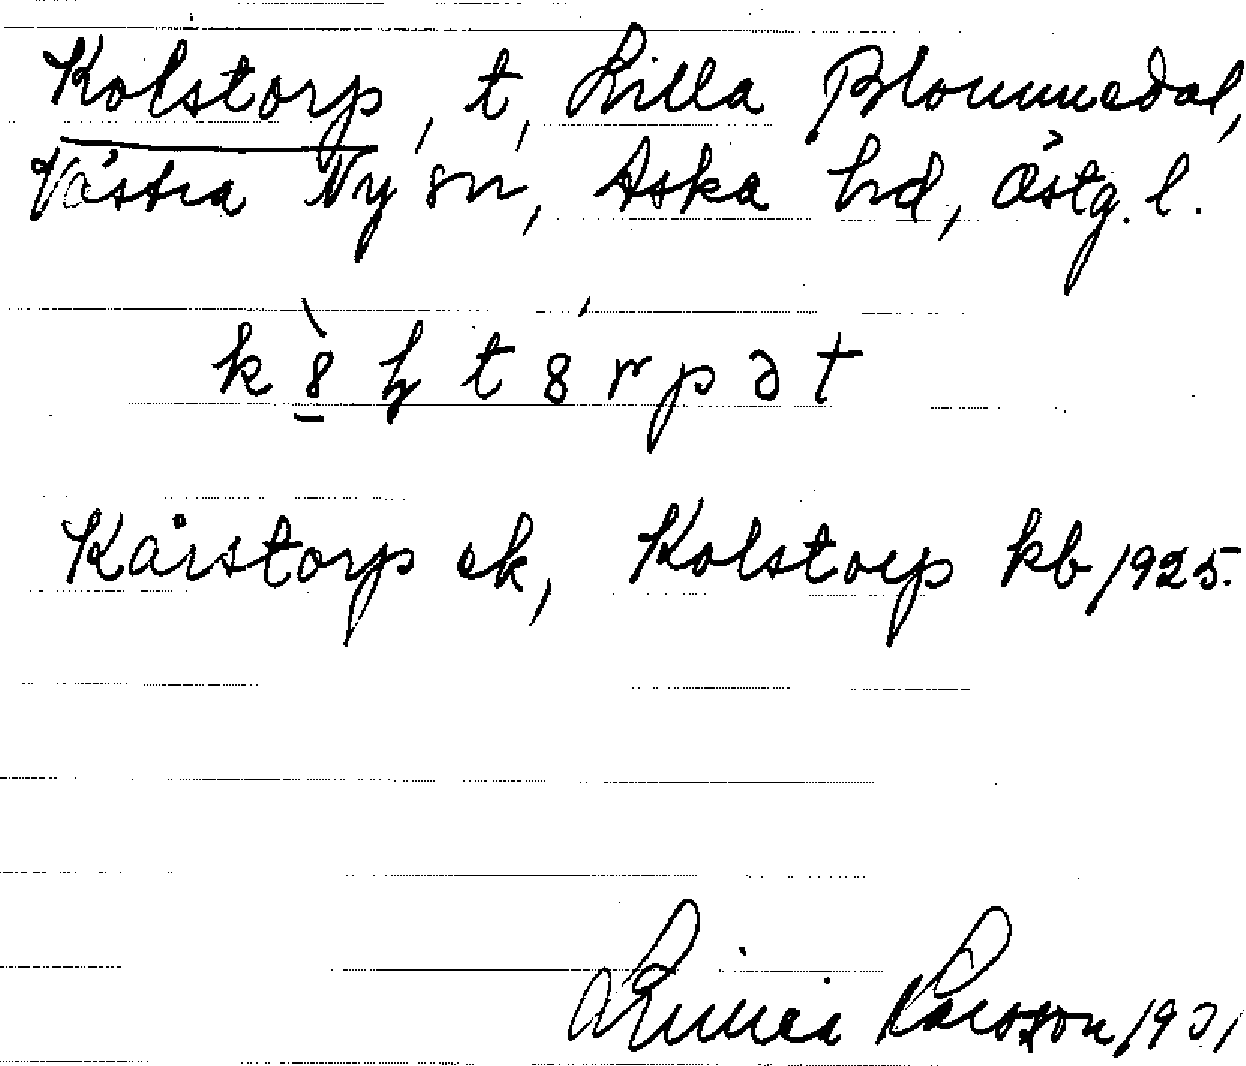 Kolstorp, t, Lilla Blommedal,
Västra Ny sn, Aska hd, Östg. l.
Kårstorp ek, Kolstorp kb 1925.
Linnéa Larsson 1931